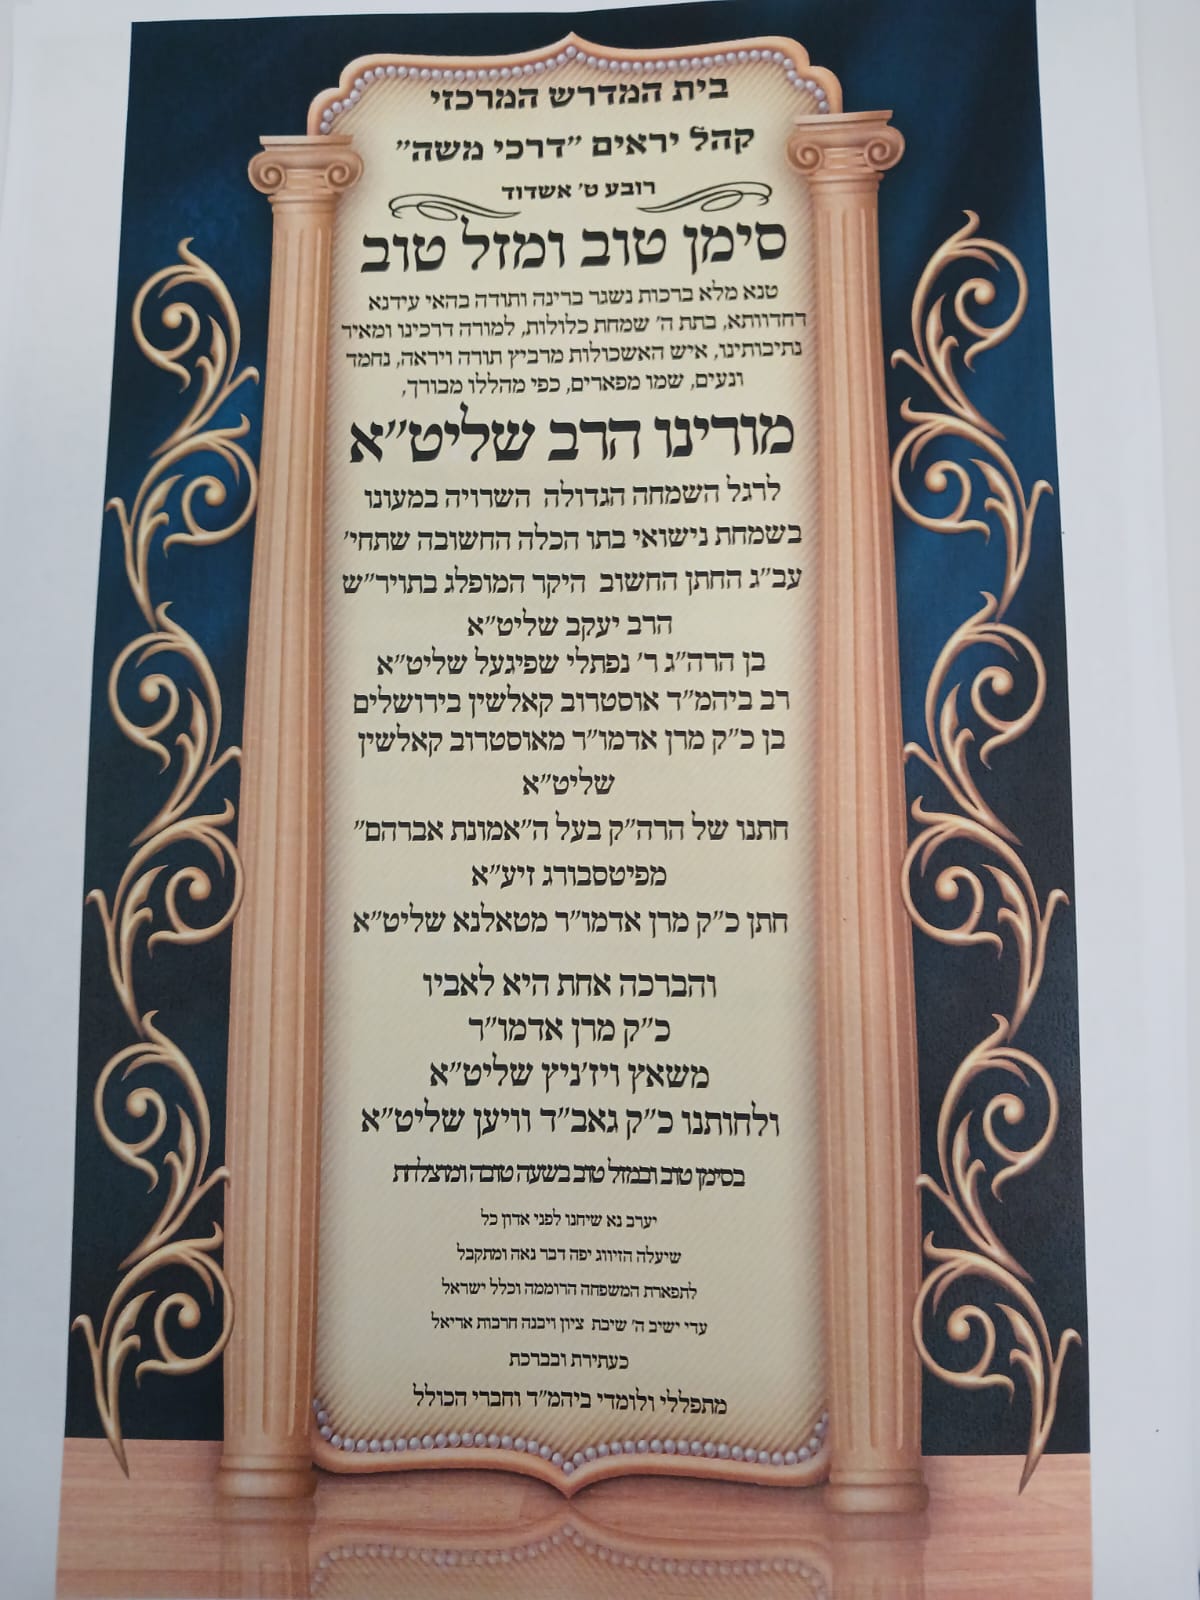 בית המדרש המרכזי
קהל יראים "דרכי משה"
רובע ט' אשדוד
סימן טוב ומזל טוב
טנא מלא ברכות נשגר ברינה ותודה בהאי עידנא
דחדוותא, בתת ה' שמחת כלולות, למורה דרכינו ומאיר
נתיבותינו, איש האשכולות מרביץ תורה ויראה, נחמד
ונעים, שמו מפארים, כפי מהללו מבורך,
מורינו הרב שליט"א
לרגל השמחה הגדולה השרויה במעונו
בשמחת נישואי בתו הכלה החשובה שתחי'
עב"ג החתן החשוב היקר המופלג בתויר"ש
הרב יעקב שליט"א
בן הרה"ג ר' נפתלי שפיגעל שליט"א
רב ביהמ"ד אוסטרוב קאלשין בירושלים
בן כ"ק מרן אדמו"ר מאוסטרוב קאלשין
שליט"א
חתנו של הרה"ק בעל ה"אמונת אברהם"
מפיטסבורג זיע"א
חתן כ"ק מרן אדמו"ר מטאלנא שליט"א
והברכה אחת היא לאביו
כ"ק מרן אדמו"ר
משאץ ויז'ניץ שליט"א
ולחותנו כ"ק גאב"ד וויען שליט"א
בסימן טוב ובמזל טוב בשעה טובה ומוצלחת
יערב נא שיחנו לפני אדון כל
שיעלה הזיווג יפה דבר נאה ומתקבל
לתפארת המשפחה הרוממה וכלל ישראל
עדי ישיב ה' שיבת ציון ויבנה חרבות אריאל
כעתירת ובברכת
מתפללי ולומדי ביהמ"ד וחברי הכולל